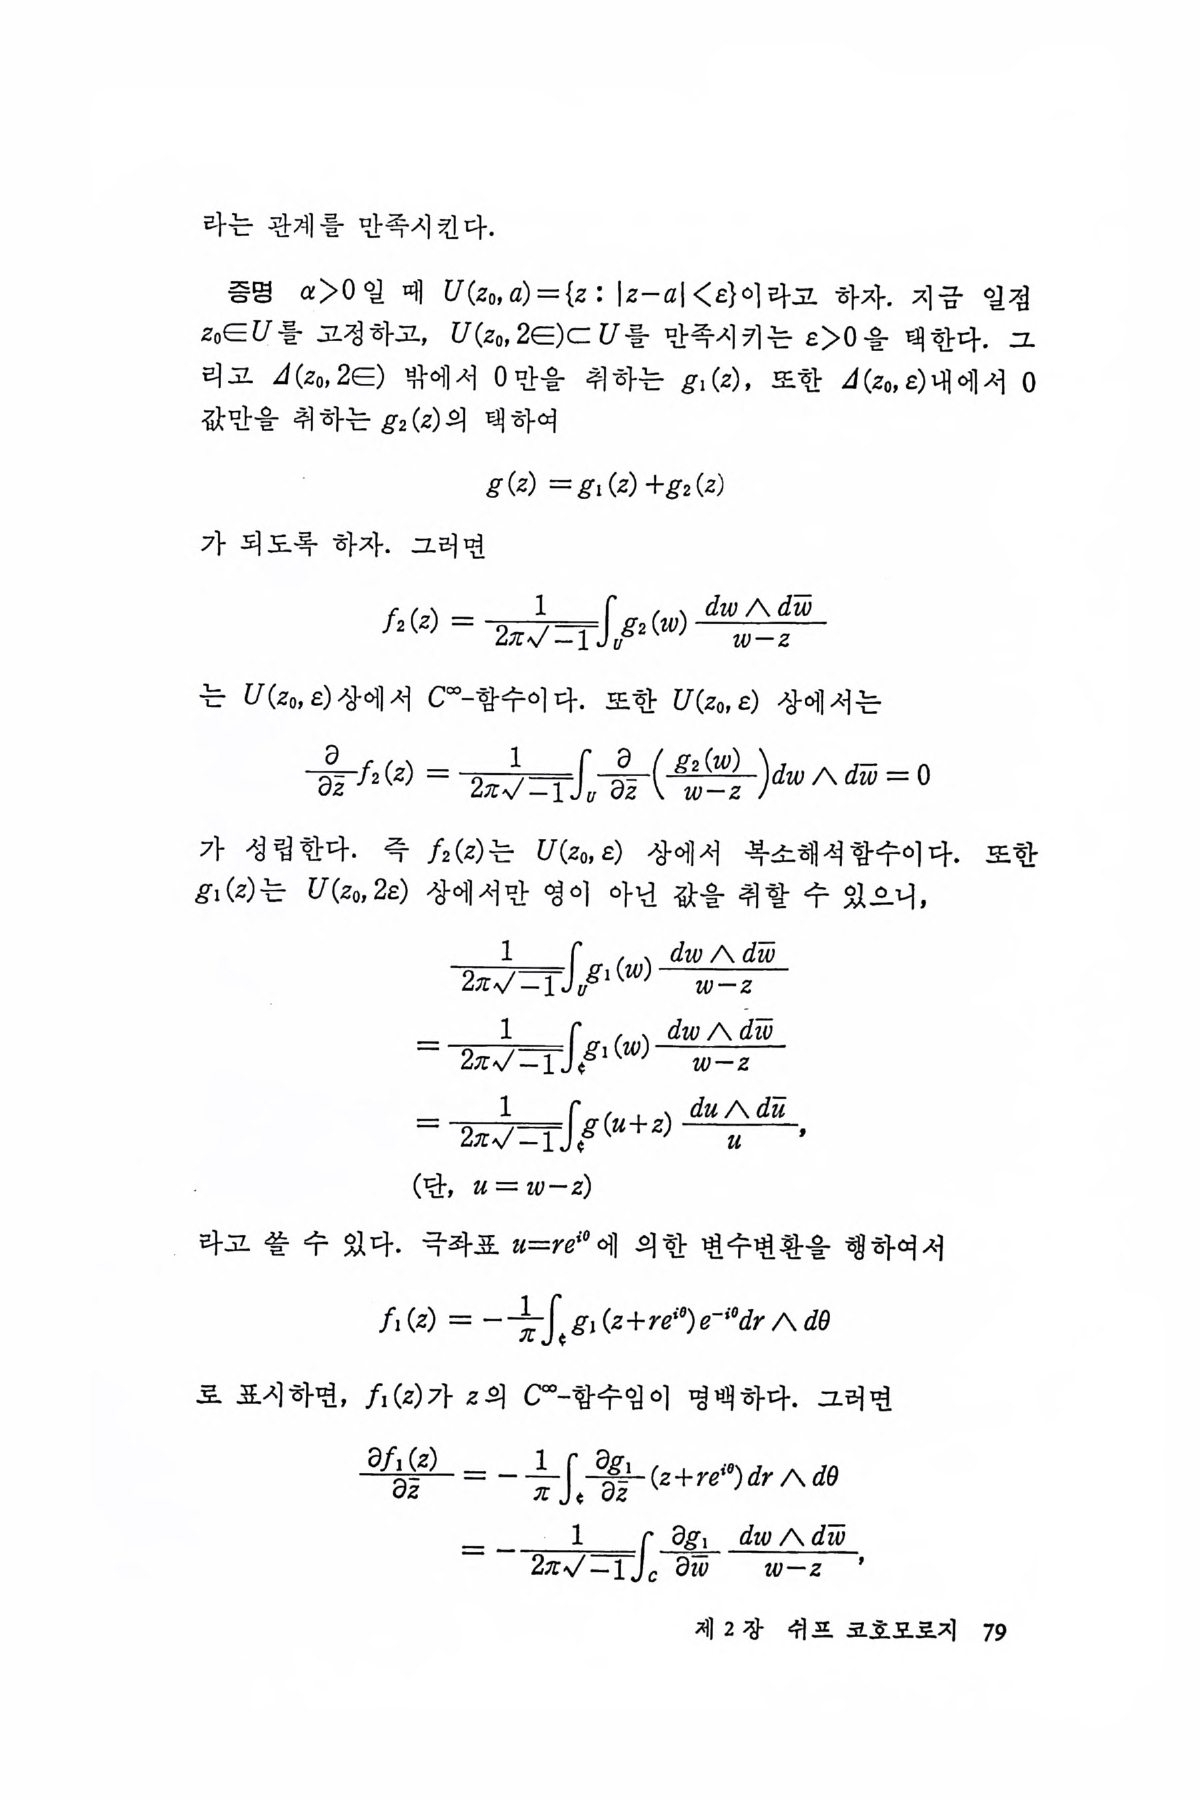 라는 관계를 만족시킨다.
증명 α>0일 때 U(z₀, a)={z : |z−a|<ε}이라고 하자. 지금 일점
z₀∈U를 고정하고, U(z₀, 2∈)⊂U를 만족시키는 ε>0을 택한다. 그
리고 Δ(z₀, 2∈) 밖에서 0만을 취하는 g₁(z), 또한 Δ(z₀, ε)내에서 0
값만을 취하는 g₂(z)의 택하여
g(z) = g₁(z) + g₂(z)
가 되도록 하자. 그러면
f₂(z) = \frac{1}{2π√−1} ∫_U g₂(w) \frac{dw ∧ d\bar{w}}{w−z}
는 U(z₀, ε)상에서 C^∞-함수이다. 또한 U(z₀, ε) 상에서는
\frac{∂}{∂\bar{z}} f₂(z) = \frac{1}{2π√−1} ∫_U \frac{∂}{∂\bar{z}} ( \frac{g₂(w)}{w−z} ) dw ∧ d\bar{w} = 0
가 성립한다. 즉 f₂(z)는 U(z₀, ε) 상에서 복소해석함수이다. 또한
g₁(z)는 U(z₀, 2ε) 상에서만 영이 아닌 값을 취할 수 있으니,
\frac{1}{2π√−1} ∫_U g₁(w) \frac{dw ∧ d\bar{w}}{w−z}
= \frac{1}{2π√−1} ∫_¢ g₁(w) \frac{dw ∧ d\bar{w}}{w−z}
= \frac{1}{2π√−1} ∫_¢ g(u+z) \frac{du ∧ d\bar{u}}{u},
(단, u = w−z)
라고 쓸 수 있다. 극좌표 u=re^{iθ}에 의한 변수변환을 행하여서
f₁(z) = −\frac{1}{π} ∫_¢ g₁(z+re^{iθ})e^{−iθ}dr ∧ dθ
로 표시하면, f₁(z)가 z의 C^∞-함수임이 명백하다. 그러면
\frac{∂f₁(z)}{∂\bar{z}} = −\frac{1}{π} ∫_¢ \frac{∂g₁}{∂\bar{z}} (z+re^{iθ}) dr ∧ dθ
= −\frac{1}{2π√−1} ∫_C \frac{∂g₁}{∂\bar{w}} \frac{dw ∧ d\bar{w}}{w−z},
제 2 장 쉬프 코호모로지 79